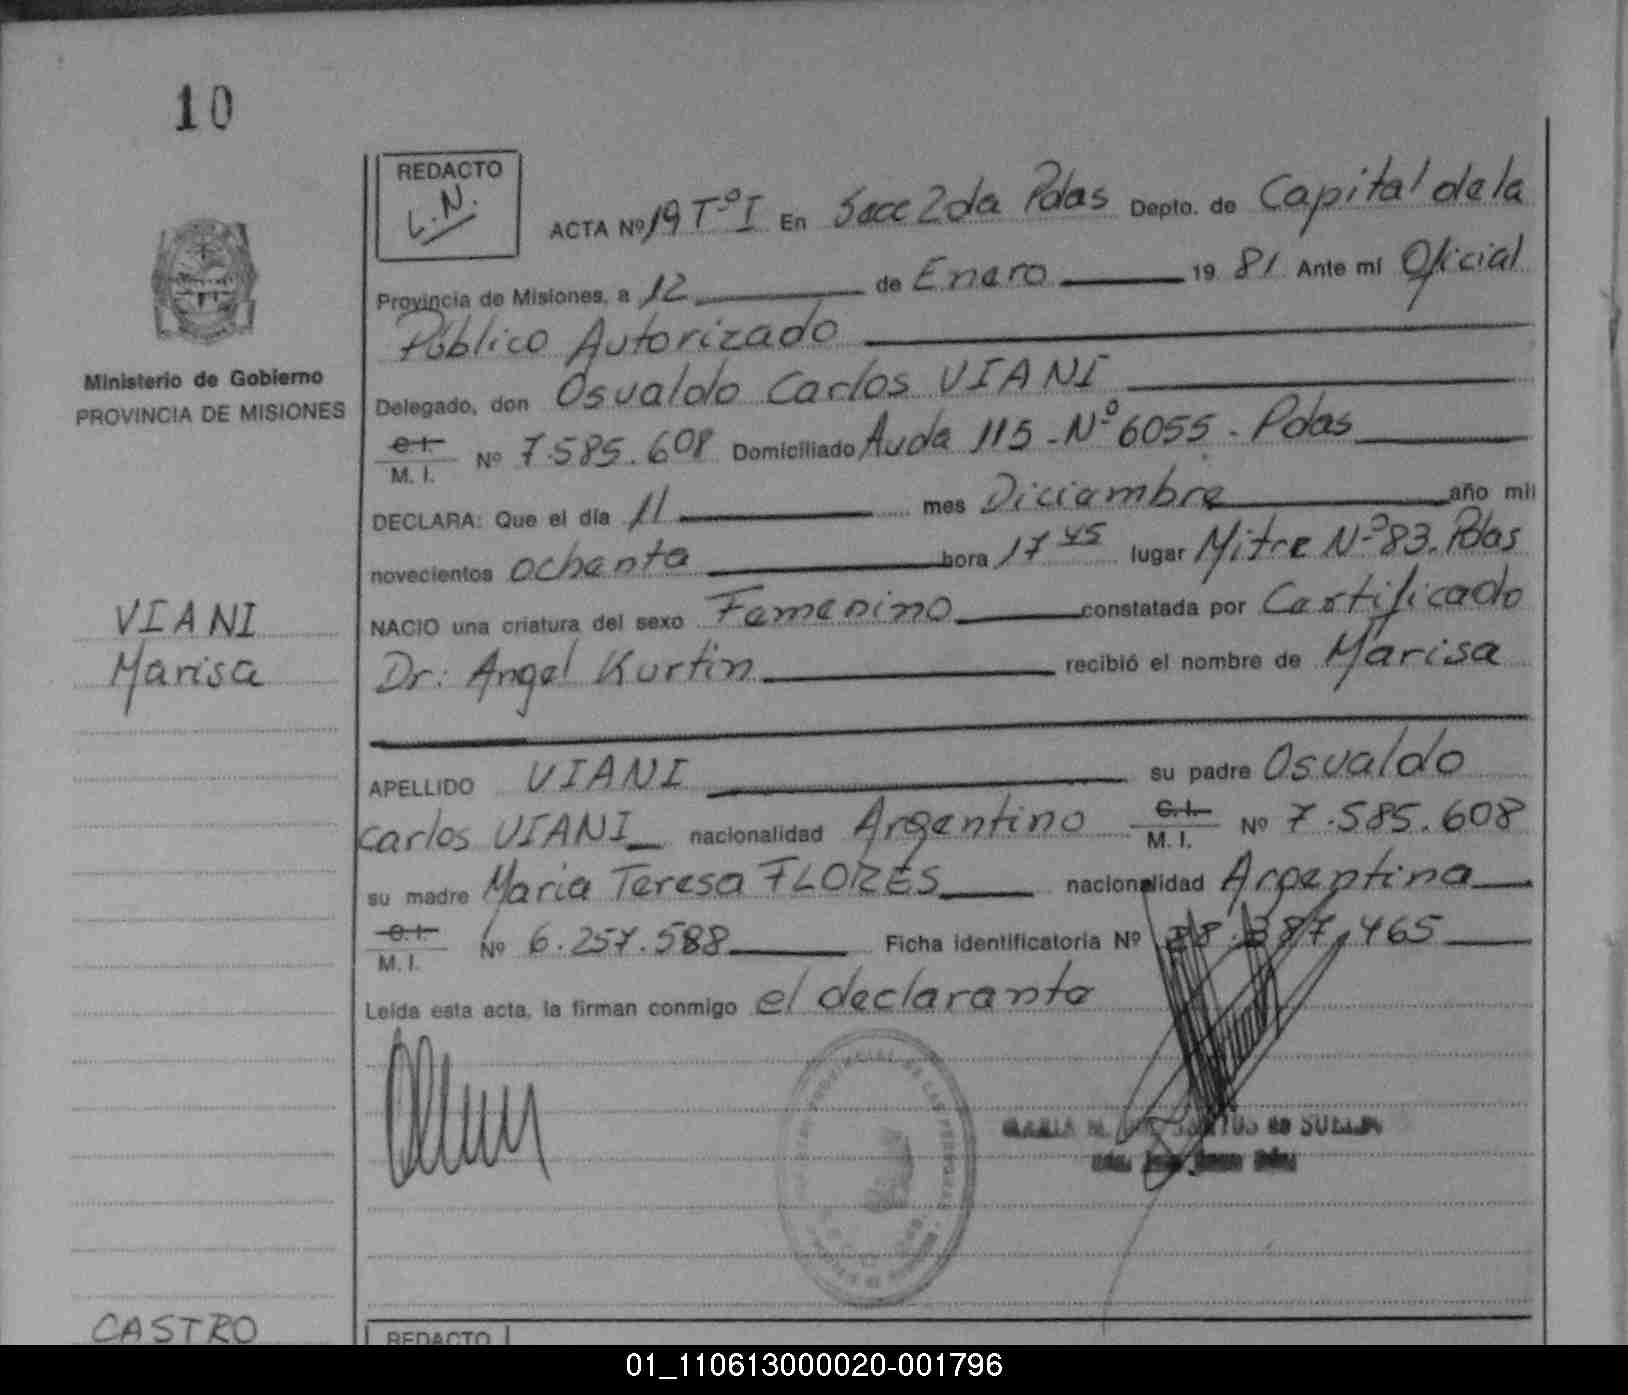 10
REDACTO
L.N.
ACTA Nº 19 Tº I En Secc 2da Pdas Depto. de Capital de la
Provincia de Misiones, a 12 de Enero 19 81 Ante mí Oficial
Público Autorizado
Ministerio de Gobierno
PROVINCIA DE MISIONES
Delegado, don Osvaldo Carlos VIANI
C.I.
M. I. Nº 7.585.608 Domiciliado Avda 115 - Nº 6055 - Pdas
DECLARA: Que el día 11 mes Diciembre año mil
novecientos ochenta hora 17 45 lugar Mitre Nº 83. Pdas
VIANI
Marisa
NACIO una criatura del sexo Femenino constatada por Certificado
Dr: Angel Kurtin recibió el nombre de Marisa
APELLIDO VIANI su padre Osvaldo
Carlos VIANI nacionalidad Argentino C.I.
M. I. Nº 7.585.608
su madre Maria Teresa FLORES nacionalidad Argentina
C.I.
M. I. Nº 6.257.588 Ficha identificatoria Nº 28.387.465
Leída esta acta, la firman conmigo el declarante
CASTRO
REDACTO
01_110613000020-001796